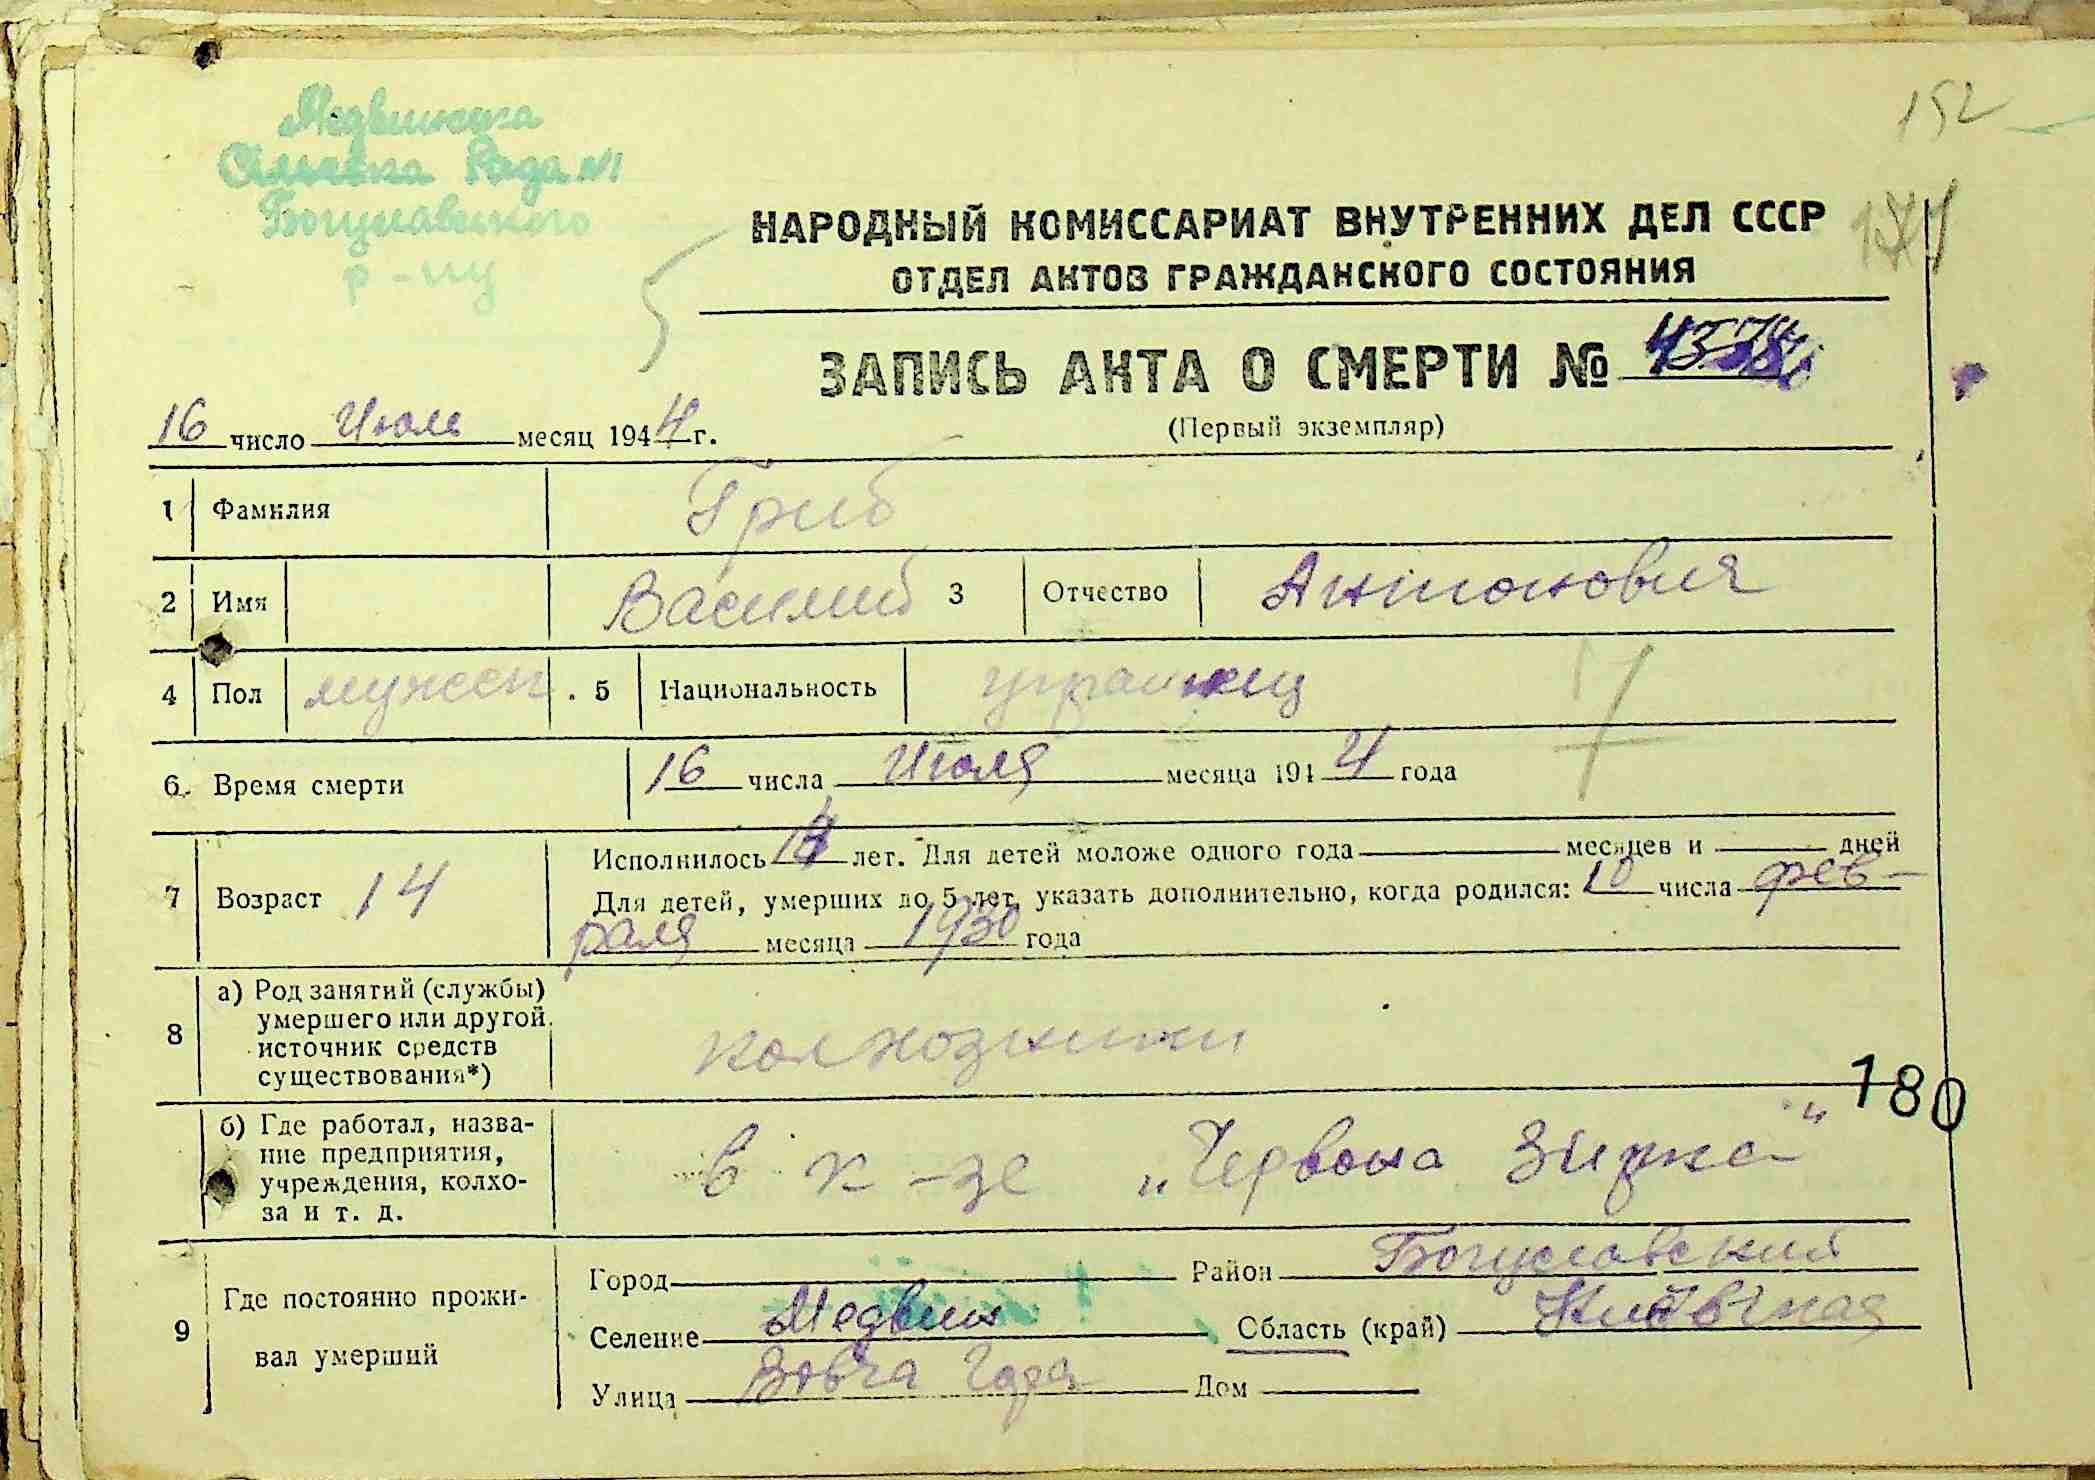 152
Медвинська
Сільська Рада №1
Богуславського
р-ну
НАРОДНЫЙ КОМИССАРИАТ ВНУТРЕННИХ ДЕЛ СССР
ОТДЕЛ АКТОВ ГРАЖДАНСКОГО СОСТОЯНИЯ
ЗАПИСЬ АКТА О СМЕРТИ №
(Первый экземпляр)
16 число Июль месяц 1944 г.
1 Фамилия Гриб
2 Имя Василий 3 Отчество Антонович
4 Пол мужск. 5 Национальность украинец
6. Время смерти 16 числа Июля месяца 1944 года
7 Возраст 14 Исполнилось 14 лет. Для детей моложе одного года месяцев и дней
Для детей, умерших до 5 лет, указать дополнительно, когда родился: 10 числа фев-
раля месяца 1930 года
8 а) Род занятий (службы)
умершего или другой
источник средств
существования*)
колхозники
180
б) Где работал, назва-
ние предприятия,
учреждения, колхо-
за и т. д.
в к-зе „Червона Зирка"
9 Где постоянно прожи-
вал умерший
Город Район Богуславский
Селение Медвин Область (край) Киевская
Улица Вовча Гора Дом